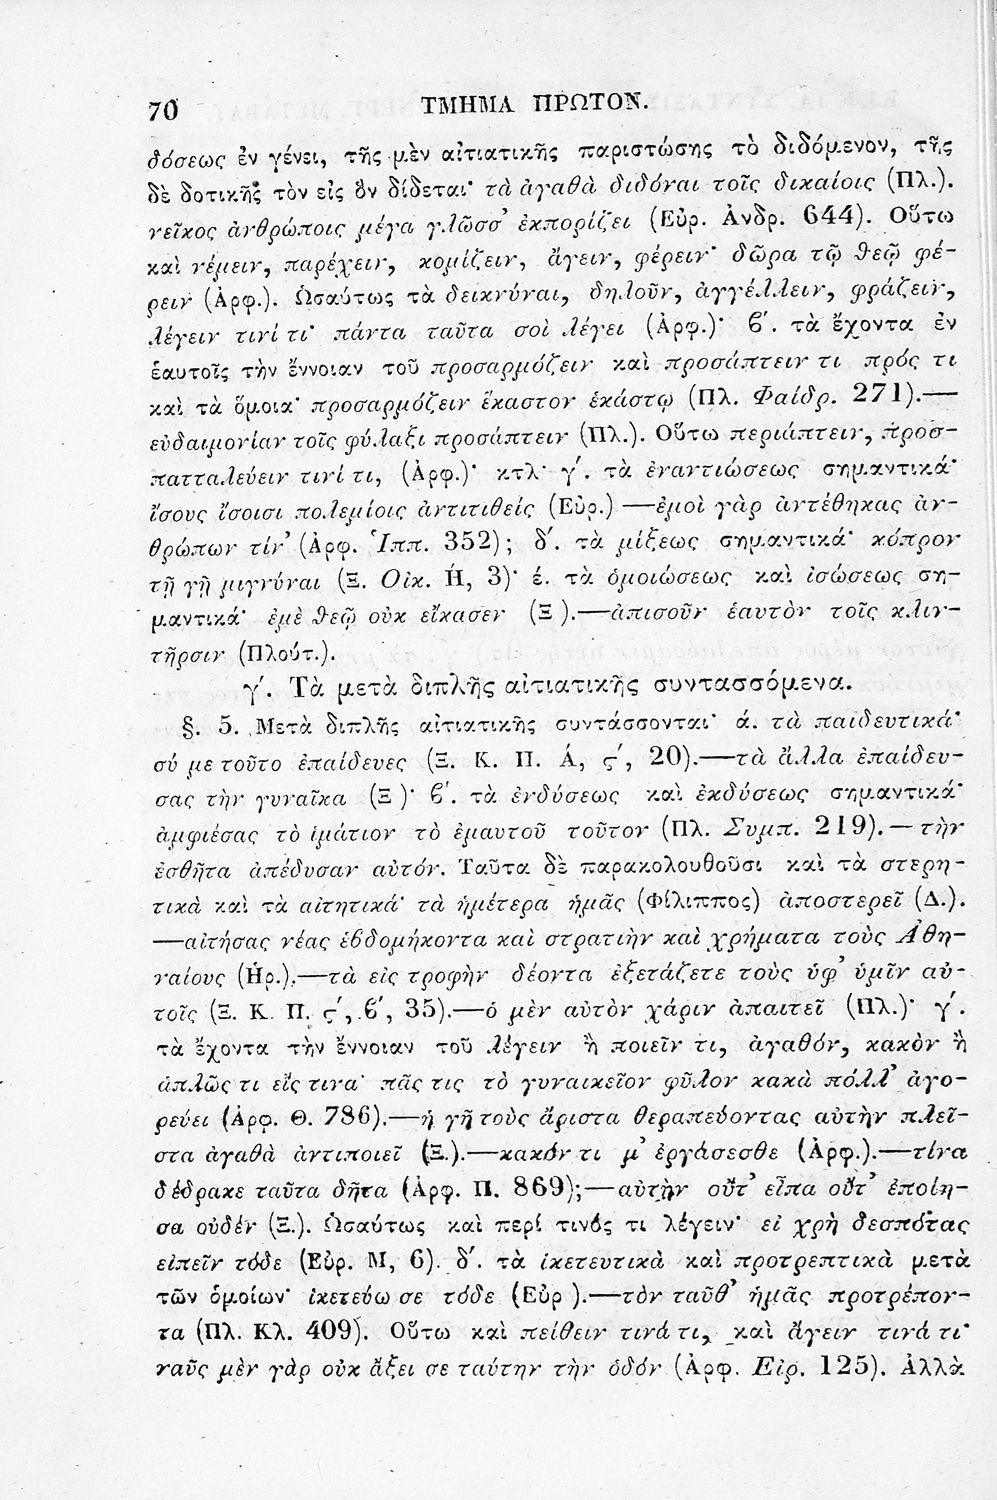 70 ΤΜΗΜΑ ΠΡΩΤΟΝ.
δόσεως ἐν γένει, τῆς μὲν αἰτιατικῆς παριστώσης τὸ διδόμενον, τῆς
δὲ δοτικῆς τὸν εἰς ὃν δίδεται· τὰ ἀγαθὰ διδόναι τοῖς δικαίοις (Πλ.).
νεῖκος ἀνθρώποις μέγα γλῶσσ’ ἐκπορίζει (Εὐρ. Ἀνδρ. 644). Οὕτω
καὶ νέμειν, παρέχειν, κομίζειν, ἄγειν, φέρειν· δῶρα τῷ θεῷ φέ-
ρειν (Ἀρφ.). Ὡσαύτως τὰ δεικνύναι, δηλοῦν, ἀγγέλλειν, φράζειν,
λέγειν τινί τι· πάντα ταῦτα σοὶ λέγει (Ἀρφ.)· ϐ΄. τὰ ἔχοντα ἐν
ἑαυτοῖς τὴν ἔννοιαν τοῦ προσαρμόζειν καὶ προσάπτειν τι πρός τι
καὶ τὰ ὅμοια· προσαρμόζειν ἕκαστον ἑκάστῳ (Πλ. Φαίδρ. 271).—
εὐδαιμονίαν τοῖς φύλαξι προσάπτειν (Πλ.). Οὕτω περιάπτειν, προσ-
πατταλεύειν τινί τι, (Ἀρφ.)· κτλ· γ΄. τὰ ἐναντιώσεως σημαντικά·
ἴσους ἴσοισι πολεμίοις ἀντιτιθείς (Εὐρ.) —ἐμοὶ γὰρ ἀντέθηκας ἀν-
θρώπων τίν’ (Ἀρφ. Ἱππ. 352); δ΄. τὰ μίξεως σημαντικά· κόπρον
τῇ γῇ μιγνύναι (Ξ. Οἰκ. Ή, 3)· έ. τὰ ὁμοιώσεως καὶ ἰσώσεως ση-
μαντικά· ἐμὲ θεῷ οὐκ εἴκασεν (Ξ ).—ἀπισοῦν ἑαυτὸν τοῖς κλιν-
τῆρσιν (Πλούτ.).
γ΄. Τὰ μετὰ διπλῆς αἰτιατικῆς συντασσόμενα.
§. 5. Μετὰ διπλῆς αἰτιατικῆς συντάσσονται· ά. τὰ παιδευτικά·
σύ με τοῦτο ἐπαίδευες (Ξ. Κ. Π. Ά, ϛ΄, 20).—τὰ ἄλλα ἐπαίδευ-
σας τὴν γυναῖκα (Ξ )· ϐ΄. τὰ ἐνδύσεως καὶ ἐκδύσεως σημαντικά·
ἀμφιέσας τὸ ἱμάτιον τὸ ἐμαυτοῦ τοῦτον (Πλ. Συμπ. 219).—τὴν
ἐσθῆτα ἀπέδυσαν αὐτόν. Ταῦτα δὲ παρακολουθοῦσι καὶ τὰ στερη-
τικὰ καὶ τὰ αἰτητικά· τὰ ἡμέτερα ἡμᾶς (Φίλιππος) ἀποστερεῖ (Δ.).
—αἰτήσας νέας ἑβδομήκοντα καὶ στρατιὴν καὶ χρήματα τοὺς Ἀθη-
ναίους (Ἡρ.).—τὰ εἰς τροφὴν δέοντα ἐξετάζετε τοὺς ὑφ’ ὑμῖν αὐ-
τοῖς (Ξ. Κ. Π. ϛ΄, ϐ΄, 35).—ὁ μὲν αὐτὸν χάριν ἀπαιτεῖ (Πλ.)· γ΄.
τὰ ἔχοντα τὴν ἔννοιαν τοῦ λέγειν ἢ ποιεῖν τι, ἀγαθόν, κακὸν ἢ
ἁπλῶς τι εἴς τινα· πᾶς τις τὸ γυναικεῖον φῦλον κακὰ πόλλ’ ἀγο-
ρεύει (Ἀρφ. Θ. 786).—ἡ γῆ τοὺς ἄριστα θεραπεύοντας αὐτὴν πλεῖ-
στα ἀγαθὰ ἀντιποιεῖ (Ξ.).—κακόν τι μ’ ἐργάσεσθε (Ἀρφ.).—τίνα
δέδρακε ταῦτα δῆτα (Ἀρφ. Π. 869);—αὐτὴν οὔτ’ εἶπα οὔτ’ ἐποίη-
σα οὐδέν (Ξ.). Ὡσαύτως καὶ περί τινός τι λέγειν· εἰ χρὴ δεσπότας
εἰπεῖν τόδε (Εὐρ. Μ, 6). δ΄. τὰ ἱκετευτικὰ καὶ προτρεπτικὰ μετὰ
τῶν ὁμοίων· ἱκετεύω σε τόδε (Εὐρ ).—τὸν ταῦθ’ ἡμᾶς προτρέπον-
τα (Πλ. Κλ. 409). Οὕτω καὶ πείθειν τινά τι, καὶ ἄγειν τινά τι·
ναῦς μὲν γὰρ οὐκ ἄξει σε ταύτην τὴν ὁδόν (Ἀρφ. Εἰρ. 125). Ἀλλὰ